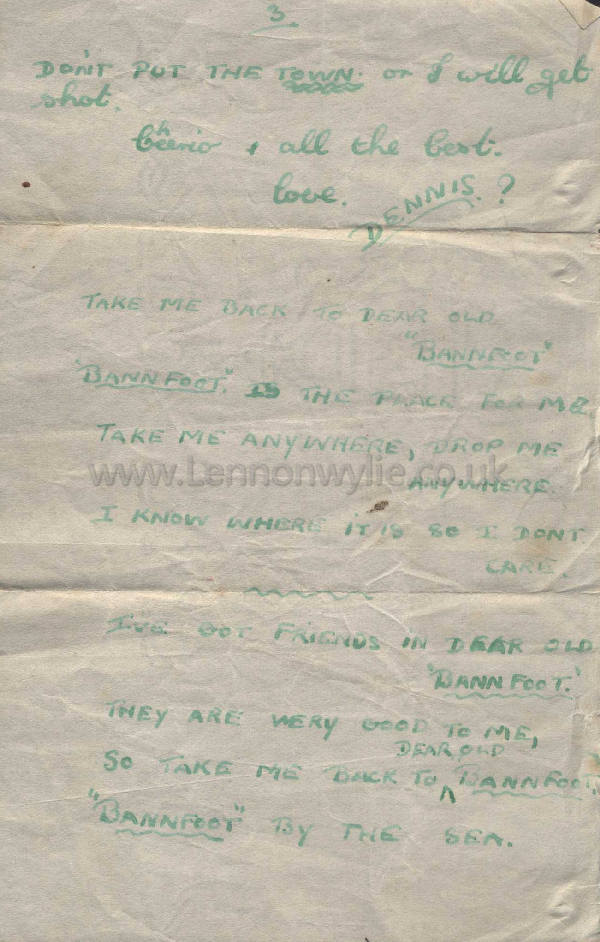 3
DON'T PUT THE TOWN. or I will get
shot.
Cheerio + all the best.
love.
DENNIS. ?
TAKE ME BACK TO DEAR OLD
"BANNFOOT"
"BANNFOOT." IS THE PLACE FOR ME
TAKE ME ANYWHERE, DROP ME
ANYWHERE.
www.Lennonwylie.co.uk
I KNOW WHERE IT IS SO I DONT
CARE.
I'VE GOT FRIENDS IN DEAR OLD
"BANNFOOT."
THEY ARE VERY GOOD TO ME,
DEAR OLD
SO TAKE ME BACK TO BANNFOOT,
"BANNFOOT" BY THE SEA.